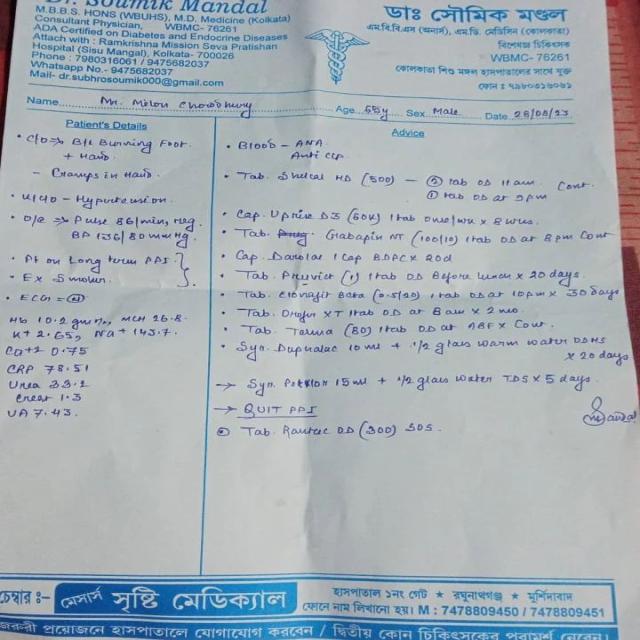 Dr. Soumik Mandal
M.B.B.S. HONS (WBUHS), M.D. Medicine (Kolkata)
Consultant Physician, WBMC- 76261
ADA Certified on Diabetes and Endocrine Diseases
Attach with : Ramkrishna Mission Seva Pratishan
Hospital (Sisu Mangal), Kolkata- 700026
Phone : 7980316061 / 9475682037
Whatsapp No.- 9475682037
Mail- dr.subhrosoumik000@gmail.com
ডাঃ সৌমিক মণ্ডল
এম.বি.বি.এস (অনার্স), এম.ডি. মেডিসিন (কোলকাতা)
বিশেষজ্ঞ চিকিৎসক
WBMC- 76261
কোলকাতা শিশু মঙ্গল হাসপাতালের সাথে যুক্ত
ফোন : ৭৯৮০৩১৬০৬১
Name Mr. Milon Chowdhury Age 55y Sex Male Date
Patient's Details
• C/O => B/L Burning Foot.
+ Hand.
- Cramps in Hand.
• H/O - Hypertension.
• O/E => Pulse 86/min, reg.
BP 136/80 mmHg.
• Pt on Long term PPI.
• Ex Smoker.
• ECG = (N)
Hb 10.2 gm%, MCH 26.8.
K+ 2.65, Na+ 143.7.
Ca+2 0.75
CRP 78.51
Urea 33.1
Creat 1.3
UA 7.43.
Advice
• Blood - ANA
Anti CCP
• Tab. Shelcal HD (500) - tab OD 11am. Cont.
① tab OD at 9pm
• Cap. Uprise D3 (60K) 1 tab once/wk x 8 wks.
• Tab. Gabapin NT (100/10) 1 tab OD at 8pm Cont
• Cap. 1 Cap BDPC x 20d
• Tab. (1) 1 tab OD Before lunch x 20 days.
• Tab. Clonafit Beta (0.5/20) 1 tab OD at 10pm x 30 days
• Tab. Orofer XT 1 tab OD at 8am x 2 mo.
• Tab. (80) 1 tab OD at ABF x Cont.
• Syp. Duphalac 10 ml + 1/2 glass warm water ODHS
x 20 days
→ Syp. Potklor 15 ml + 1/2 glass water TDS x 5 days.
→ QUIT PPI
Tab. Rantac OD (300) SOS.
চেম্বার :- মেসার্স সৃষ্টি মেডিক্যাল
হাসপাতাল ১নং গেট ★ রঘুনাথগঞ্জ ★ মুর্শিদাবাদ
ফোনে নাম লিখানো হয়। M : 7478809450 / 7478809451
জরুরী প্রয়োজনে হাসপাতালে যোগাযোগ করবেন / দ্বিতীয় কোন চিকিৎসকের পরামর্শ